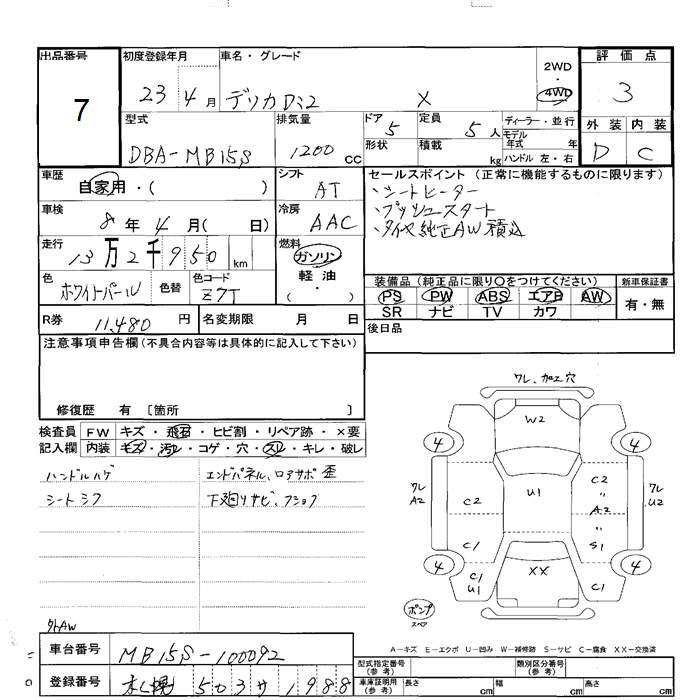 出品番号 7
初度登録年月 23 4月
車名・グレード デリカD:2 X
2WD・4WD
評価点 3
型式 DBA-MB15S
排気量 1200cc
ドア 5
形状
定員 5人
積載 kg
ディーラー・並行
モデル年式 年
ハンドル 左・右
外装 D
内装 C
車歴 自家用・( )
シフト AT
セールスポイント (正常に機能するものに限ります)
・シートヒーター
・プッシュスタート
・タイヤ純正AW積込
車検 8年4月( 日)
冷房 AAC
走行 13万2千950km
燃料 ガソリン 軽・油 ( )
色 ホワイトパール
色替
色コード Z7T
装備品 (純正品に限り○をつけてください)
PS PW ABS エアB AW
SR ナビ TV カワ
新車保証書 有・無
R券 11,480円
名変期限 月 日
後日品
注意事項申告欄 (不具合内容等は具体的に記入して下さい)
修復歴 有 [箇所 ]
検査員記入欄
FW キズ・飛石・ヒビ割・リペア跡・×要
内装 キズ・汚レ・コゲ・穴・スレ・キレ・破レ
ハンドルハゲ
シートシワ
エンドパネル、ロアサポ歪
下廻りサビ、フショク
外AW
ワレ、加工穴
W2
4 4
C2 U1 C2
〃
A2
〃
ワレ A2
ワレ U2
C1 S1
XX
4 4
C1 U1
C1
ポンプ
スペア
A-キズ E-エクボ U-凹み W-補修跡 S-サビ C-腐食 XX-交換済
車台番号 MB15S-100092
登録番号 札幌 503 サ 1988
型式指定番号(参考)
類別区分番号(参考)
車庫証明用(参考) 長さ cm 幅 cm 高さ cm